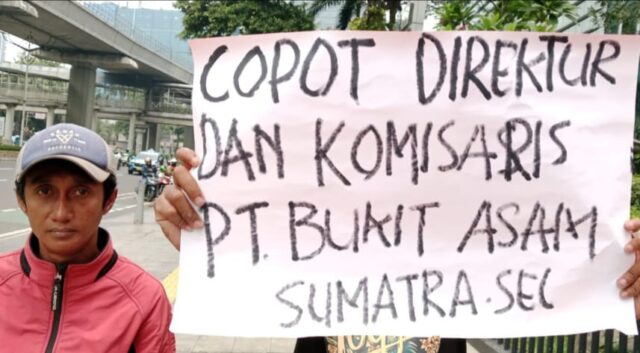 COPOT DIREKTUR
DAN KOMISARIS
PT. BUKIT ASAM
SUMATRA.SEL